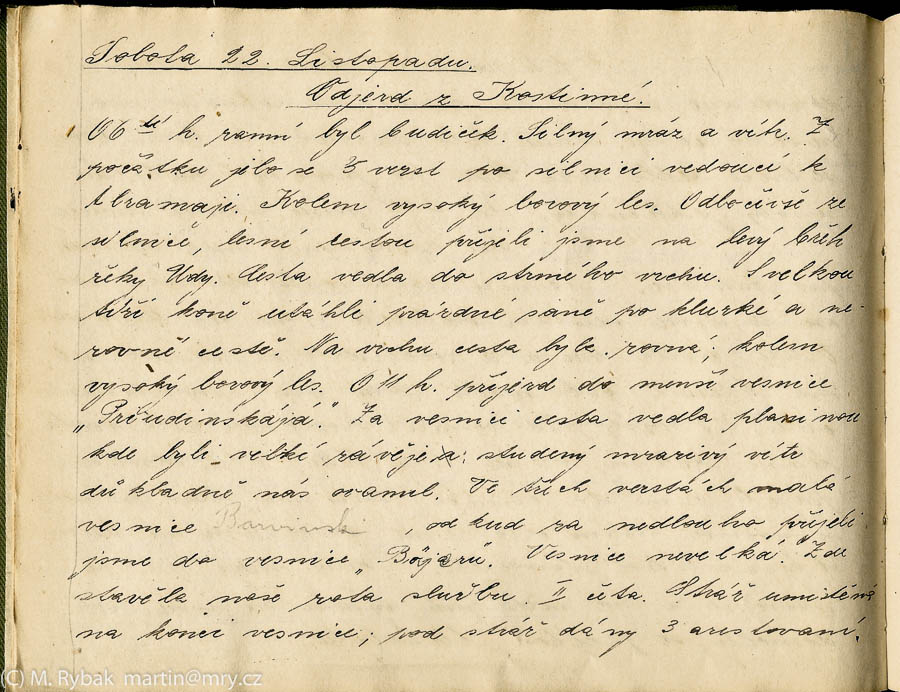 Sobota 22. Listopadu.
Odjezd z Kostinné.
O 6té h. ranní byl budíček. Silný mráz a vítr. Z
počátku jelo se 5 verst po silnici vedoucí k
Abramaji. Kolem vysoký borový les. Odbočivše ze
silnice, lesní cestou přijeli jsme na levý břeh
řeky Udy. Cesta vedla do strmého vrchu. S velkou
tíží koně utáhli prázdné saně po kluzké a ne-
rovné cestě. Na vrchu cesta byla rovná; kolem
vysoký borový les. O 11 h. příjezd do menší vesnice
„Přiudinskája." Za vesnicí cesta vedla planinou
kde byli velké závěje; studený mrazivý vítr
důkladně nás ovanul. Ve třech verstách malá
vesnice , od kud za nedlouho přijeli
jsme do vesnice „Bójerů. Vesnice nevelká. Zde
stavěla naše rota službu. II četa. Stráž umístěna
na konci vesnice; pod stráž dány 3 arestovaní.
(C) M. Rybak martin@mry.cz